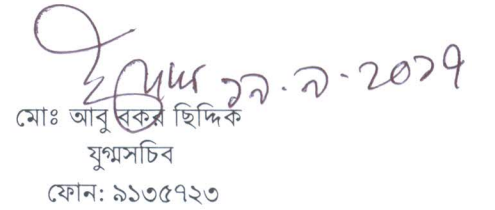 ১৯.৯.২০১৭
মোঃ আবু বকর ছিদ্দিক
যুগ্মসচিব
ফোন: ৯১৩৫৭২৩